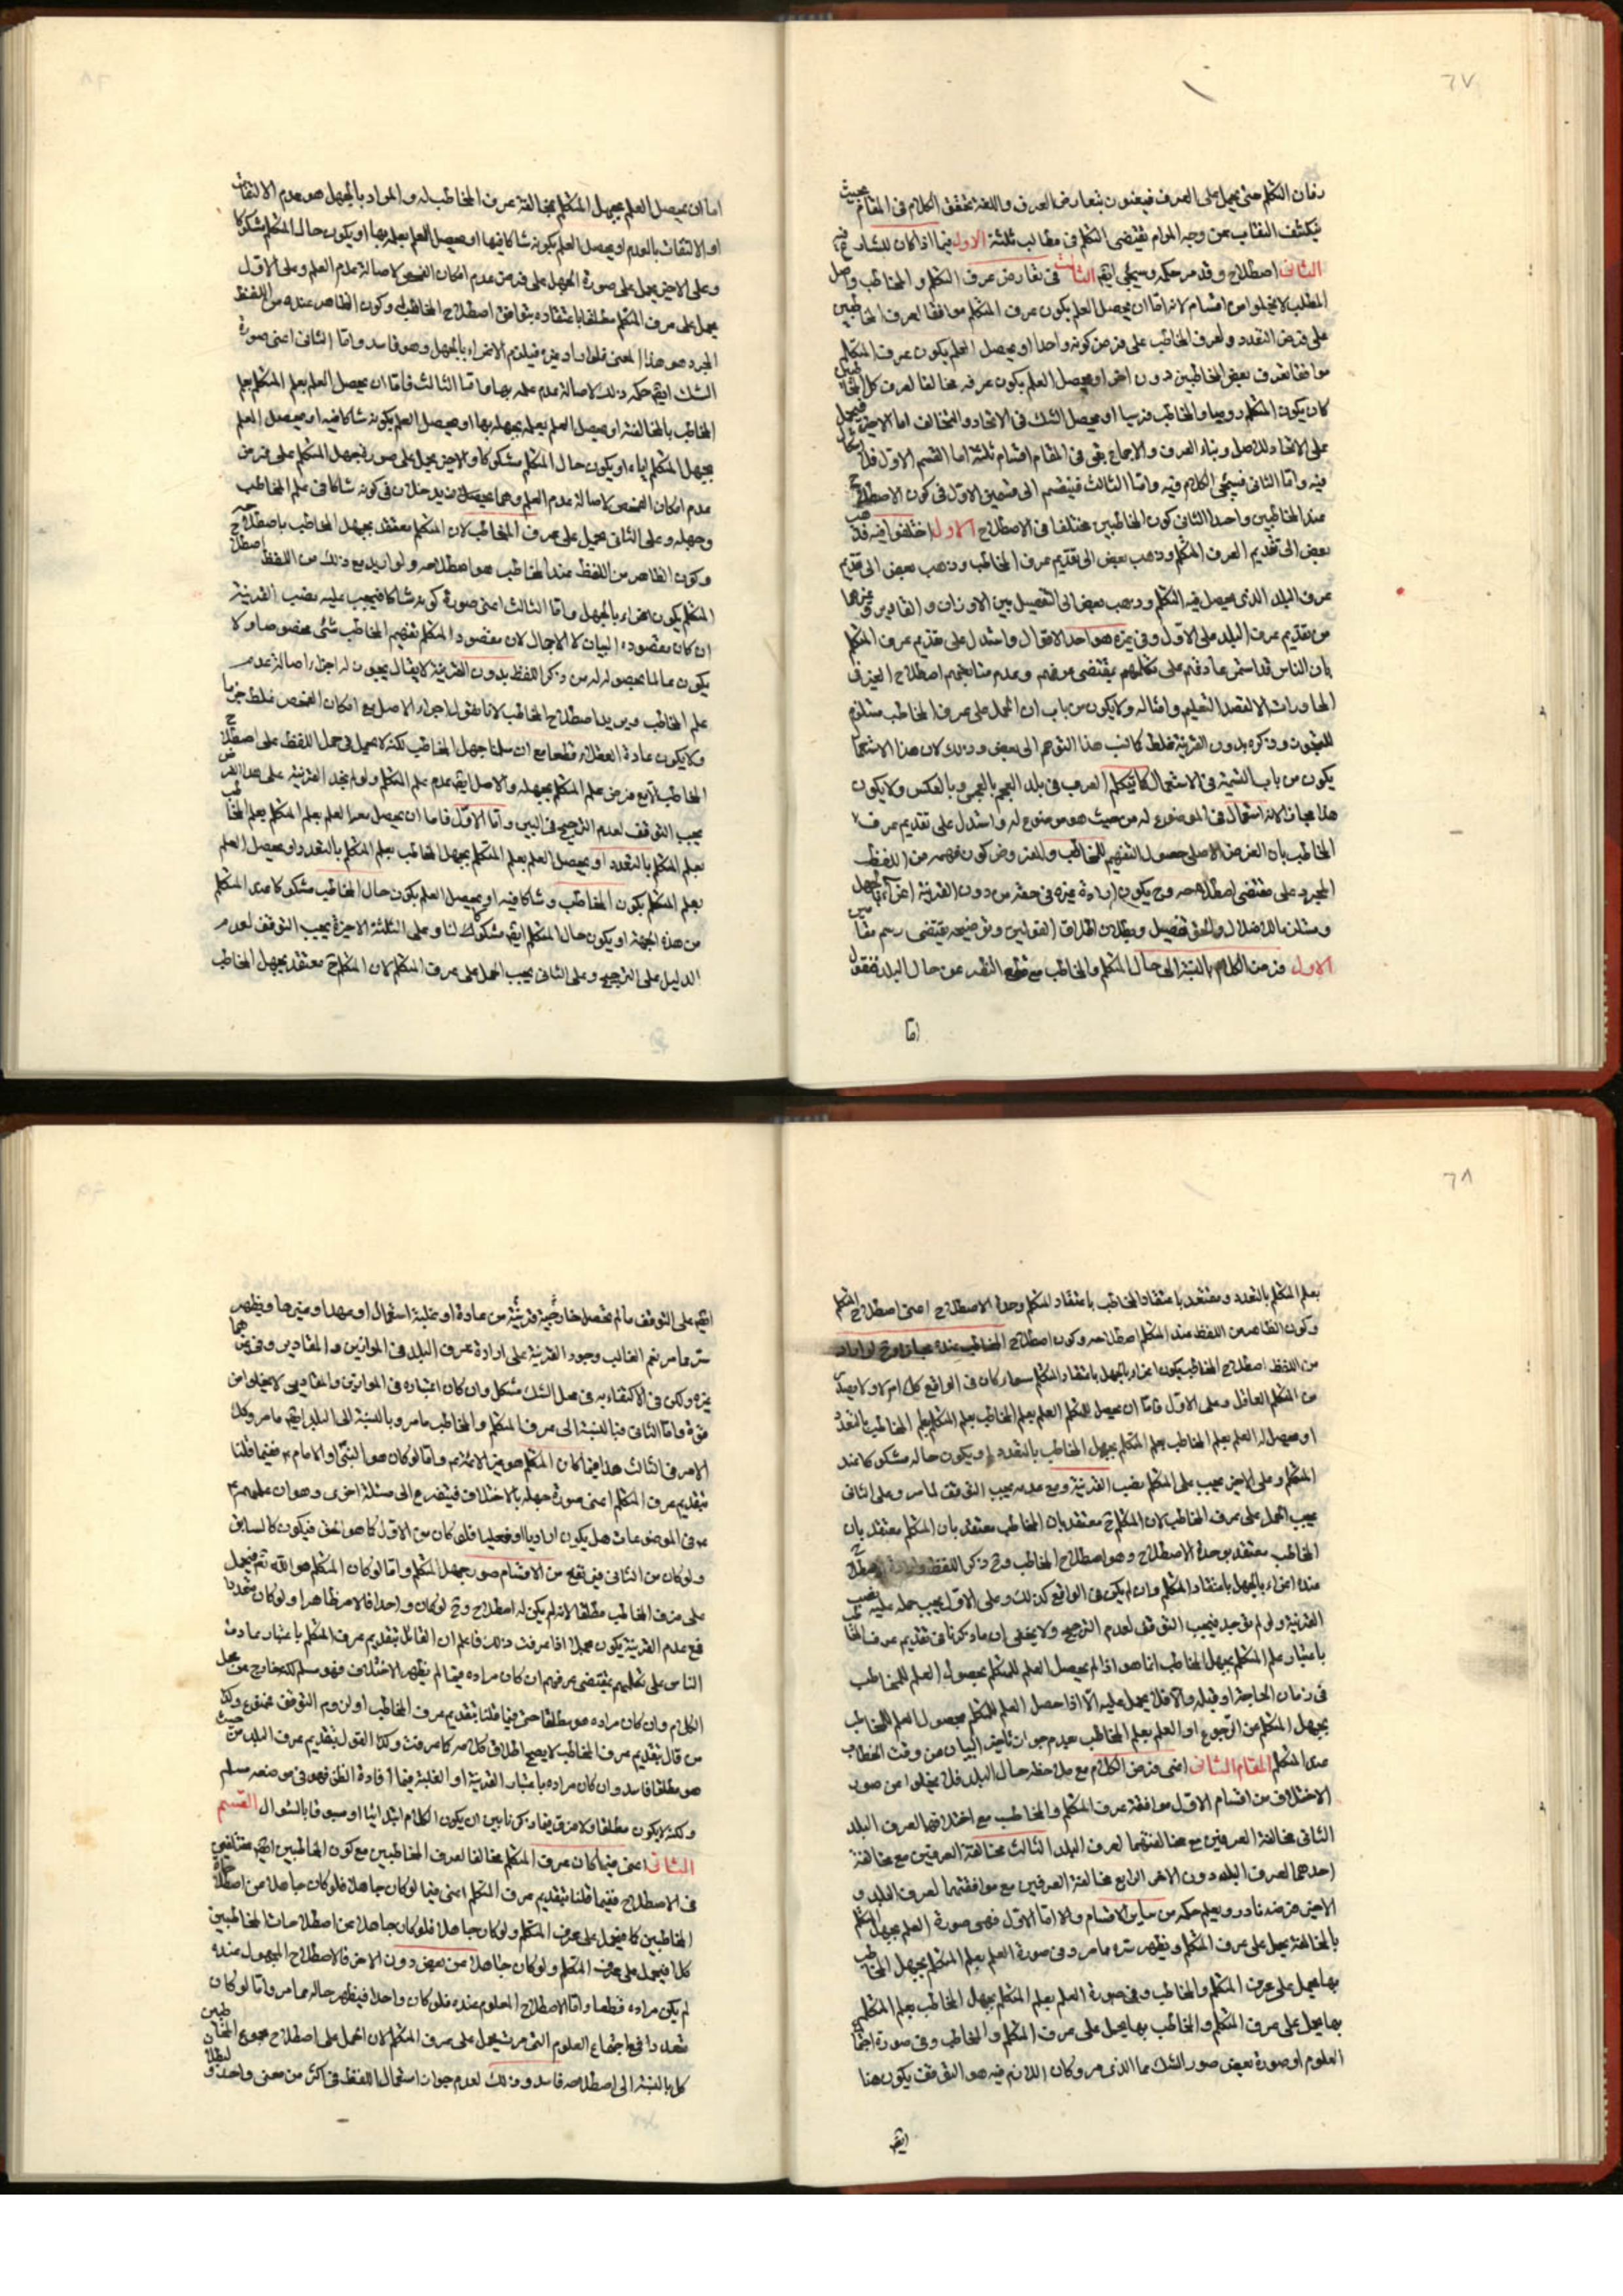 ٦٧
زمان التكلم حتى يحمل على العرف فيغنون بتعارض العرف واللغة تحقق الكلام فى المقام بحيث
ينكشف النقاب عن وجه المرام يقتضى التكلم فى مطالب ثلثة الاول فيما اذا كان للشارع فيه
اصطلاح وقد مر حكمه وسيجئ ايضا الثالث فى تعارض عرف المتكلم والمخاطب واصل
المطلب لا يخلوا من اقسام لانه اما ان يحصل العلم بكون عرف المتكلم موافقا لعرف المخاطبين
على فرض التعدد ولعرف المخاطب على فرض كونه واحدا او يحصل العلم بكون عرف المتكلم
موافقا لعرف بعض المخاطبين دون اخر او يحصل العلم بكون عرفه مخالفا لعرف كل المخاطبين
كان يكون المتكلم روميا والمخاطب فرسيا او يحصل الشك فى الاتحاد والتخالف اما الاخير فيحمل
على الاتحاد للاصل وبناء العرف والاجماع بقى فى المقام اقسام ثلثة اما القسم الاول فلا اشكال
فيه واما الثانى فسيجئ الكلام فيه واما الثالث فينقسم الى قسمين الاول فى كون الاصطلاح
عند المخاطبين واحدا الثانى كون المخاطبين مختلفا فى الاصطلاح الاول اختلفوا فيه فذهب
بعض الى تقديم العرف المتكلم وذهب بعض الى تقديم عرف المخاطب وذهب بعض الى تقديم
عرف البلد الذى يحصل فيه التكلم وذهب بعض الى التفصيل بين الاوزان والمقادير وغيرها
من تقديم عرف البلد على الاول وفى غيره هو احد الاقوال واستدل على تقديم عرف المتكلم
بان الناس قد استمر عادتهم على تكلمهم بمقتضى عرفهم وعدم متابعتهم اصطلاح الغير فى
المحاورات الا لقصد التعليم وامثاله ولا يكون من باب ان الحمل على عرف المخاطب مستلزم
للتجوز وذكره بدون القرينة غلط كما نسب هذا التوهم الى بعض وذلك لان هذا الاستعمال
يكون من باب التسمية فى الاستعمال كما يتكلم العرب فى بلد العجم بالعجمى وبالعكس ولا يكون
هذا مجازا لانه استعمال فى الموضوع له من حيث هو موضوع له واستدل على تقديم عرف
المخاطب بان الغرض الاصلى حصول التفهيم للمخاطب والمفروض كون فهمه من اللفظ
المجرد على مقتضى اصطلاحه وح يكون ارادة غيره فى حقه من دون القرينة اغراء بالجهل
ومستلزما للاضلال والحق تفصيل وبطلان اطلاق القولين وتوضيحه يقتضى رسم مقامين
الاول فرض الكلام بالنسبة الى حال المتكلم والمخاطب مع قطع النظر عن حال البلد فنقول
اما
اما ان يحصل العلم بجهل المتكلم بمخالفة عرف المخاطب له والمراد بالجهل هو عدم الالتفات
او الالتفات بالعدم او يحصل العلم بكونه شاكا فيها او يحصل العلم بعلمه بها او يكون حال المتكلم مشكوكا
وعلى الاخير يحمل على صورة الجهل على فرض عدم امكان الفحص لاصالة عدم العلم وعلى الاول
يحمل على عرف المتكلم مطلقا باعتقاده بتوافق اصطلاح المخاطب له وكون الظاهر عنده من اللفظ
المجرد هو هذا المعنى فلو اراد غيره فيلزم الاغراء بالجهل وهو فاسد واما الثانى اعنى صورة
الشك ايضا حكمه ذلك لاصالة عدم علمه بها واما الثالث فاما ان يحصل العلم بعلم المتكلم بعلم
المخاطب بالمخالفة او يحصل العلم بعلمه بجهله بها او يحصل العلم بكونه شاكا فيه او يحصل العلم
بجهل المتكلم اياه او يكون حال المتكلم مشكوكا والاخير يحمل على صورة جهل المتكلم على فرض
عدم امكان الفحص لاصالة عدم العلم وهما يدخلان فى كونه شاكا فى علم المخاطب
وجهله وعلى الثانى يحمل على عرف المخاطب لان المتكلم معتقد بجهل المخاطب باصطلاحه
وكون الظاهر من اللفظ عند المخاطب هو اصطلاحه ولو اريد مع ذلك من اللفظ اصطلاح
المتكلم يكون اغراء بالجهل واما الثالث اعنى صورة كونه شاكا فيجب عليه نصب القرينة
ان كان مقصوده البيان لا الاجمال لان مقصود المتكلم تفهيم المخاطب شئ مخصوصا ولا
يكون عالما بحصوله له من ذكر اللفظ بدون القرينة لا يقال يجوز له اجراء اصالة عدم
علم المخاطب ويريد اصطلاح المخاطب لانا نقول اجراء الاصل مع امكان الفحص غلط جزما
ولا يكون عادة العقلاء قطعا مع ان سلمنا جهل المخاطب لكنه لا يحمل فى حمل اللفظ على اصطلاح
المخاطب لانه فرض علم المتكلم بجهله والاصل ايضا عدم علم المتكلم ولو لم نجد القرينة على هذا الفرض
يجب التوقف لعدم الترجيح فى البين واما الاول فاما ان يحصل معه العلم بعلم المتكلم بعلم المخاطب
بعلم المتكلم بالتعدد او يحصل العلم بعلم المتكلم بجهل المخاطب بعلم المتكلم بالتعدد او يحصل العلم
بعلم المتكلم بكون المخاطب شاكا فيه او يحصل العلم بكون حال المخاطب مشكوكا عند المتكلم
من هذه الجهة او يكون حال المتكلم ايضا مشكوكا لنا وعلى الثلثة الاخيرة يجب التوقف لعدم
الدليل على الترجيح وعلى الثانى يجب الحمل على عرف المتكلم لان المتكلم ح معتقد بجهل المخاطب
٦٨
بعلم المتكلم بالتعدد ومعتقد باعتقاد المخاطب باعتقاد المتكلم وحدة الاصطلاح اعنى اصطلاح المتكلم
وكون الظاهر من اللفظ عند المتكلم اصطلاحه وكون اصطلاح المخاطب عنده مجازا وح لو اراد
من اللفظ اصطلاح المخاطب يكون اغراء بالجهل باعتقاد المتكلم سواء كان فى الواقع كذلك ام لا ولا يصدر
من المتكلم العاقل وعلى الاول فاما ان يحصل للمتكلم العلم بعلم المخاطب بعلم المتكلم بعلم المخاطب بالتعدد
او يحصل له العلم بعلم المخاطب بعلم المتكلم بجهل المخاطب بالتعدد او يكون حاله مشكوكا عند
المتكلم وعلى الاخير يجب على المتكلم نصب القرينة ومع عدمه يجب التوقف لما مر وعلى الثانى
يجب الحمل على عرف المخاطب لان المتكلم ح معتقد بان المخاطب معتقد بان المتكلم معتقد بان
المخاطب معتقد بوحدة الاصطلاح وهو اصطلاح المخاطب وح ذكر اللفظ وارادة اصطلاح
عنده اغراء بالجهل باعتقاد المتكلم وان لم يكن فى الواقع كذلك وعلى الاول يجب حمله عليه نصب
القرينة ولو لم توجد فيجب التوقف لعدم الترجيح ولا يخفى ان ما ذكرنا فى تقديم عرف المخاطب
باعتبار علم المتكلم بجهل المخاطب انما هو اذا لم يحصل العلم للمتكلم بحصول العلم للمخاطب
فى زمان الحاجة او قبله والا فلا يحمل عليه الا اذا حصل العلم للمتكلم بحصول العلم للمخاطب
بجهل المتكلم من الرجوع او العلم بعلم المخاطب بعدم جواز تاخير البيان عن وقت الخطاب
عند المتكلم المقام الثانى اعنى فرض الكلام مع ملاحظة حال البلد فلا يخلوا من صور
الاختلاف من اقسام الاول موافقة عرف المتكلم والمخاطب مع اختلافهما لعرف البلد
الثانى مخالفة العرفين مع مخالفتهما لعرف البلد الثالث مخالفة العرفين مع مخالفة
احدهما لعرف البلد دون الاخر الرابع مخالفة العرفين مع موافقتهما لعرف البلد و
الاخير فرضه نادر ويعلم حكمه من سائر الاقسام والا اما الاول فهى صورة العلم بجهل المتكلم
بالمخالفة يحمل على عرف المتكلم ويظهر سره مما مر وفى صورة العلم بعلم المتكلم بجهل المخاطب
بها يحمل على عرف المتكلم والمخاطب وفى صورة العلم بعلم المتكلم بجهل المخاطب بعلم المتكلم
بها يحمل على عرف المتكلم والمخاطب بها يحمل على عرف المتكلم والمخاطب وفى صورة اجتماع
العلوم او صورة بعض صور الشك مما الذى مر وكان اللازم فيه هو التوقف يكون هنا
ايضا
ايضا على التوقف ما لم تحصل خارجية قرينة من عادة او غلبة استعمال او عهد او غيرها ويظهر
سره مما مر نعم الغالب وجود القرينة على ارادة عرف البلد فى الموازين والمقادير وفى غيرهما
غيره ولكن فى الاكتفاء به فى محل الشك مشكل وان كان اعتباره فى الموازين والمقادير لا يخلوا من
قوة واما الثانى فبالنسبة الى عرف المتكلم والمخاطب ما مر وبالنسبة الى البلد ايضا ما مر وكذا
الامر فى الثالث هذا فيما كان المتكلم هو غير الائمة واما لو كان هو النبى او الامام ففيما قلنا
بتقديم عرف المتكلم اعنى صورة جهله بالاختلاف فيتفرع الى مسئلة اخرى وهو ان علمهم
فى الموضوعات هل يكون اراديا او فعليا فلو كان من الاول كما هو الحق فيكون كالسابق
ولو كان من الثانى فيرتفع من الاقسام صور جهل المتكلم واما لو كان المتكلم هو الله تعالى فيحمل
على عرف المخاطب مطلقا لانه لم يكن له اصطلاح وح لو كان واحدا فالامر ظاهرا ولو كان متعددا
فمع عدم القرينة يكون مجملا اذا عرفت ذلك فاعلم ان القائل بتقديم عرف المتكلم باعتبار عادة
الناس على تكلمهم بمقتضى عرفهم ان كان مراده فيما لم يظهر الاختلاف فهو مسلم لكنه خارج عن محل
الكلام وان كان مراده هو مطلقا حتى فيما قلنا بتقديم عرف المخاطب او لزوم التوقف ممنوع وكذا
من قال بتقديم عرف المخاطب لا يصح اطلاق كلامه كما عرفت وكذا القول بتقديم عرف البلد من حيث
هو مطلقا فاسد وان كان مراده باعتبار القرينة او الغلبة فيما افادة الظن فهو فى موضعه مسلم
ولكنه لا يكون مطلقا ولا فرق فيما ذكرنا بين ان يكون الكلام ابتدائيا او مسبوقا بالسؤال القسم
الثانى اعنى فيما كان عرف المتكلم مخالفا لعرف المخاطبين مع كون المخاطبين ايضا مختلفين
فى الاصطلاح ففيما قلنا بتقديم عرف المتكلم اعنى فيما لو كان جاهلا فلو كان جاهلا عن اصطلاحات
المخاطبين كلا فيحمل على عرف المتكلم ولو كان جاهلا فلو كان جاهلا عن اصطلاحات المخاطبين
كلا فيحمل على عرف المتكلم ولو كان جاهلا عن بعض دون الاخر فالاصطلاح المجهول عنده
لم يكن مراده قطعا واما الاصطلاح المعلوم عنده فلو كان واحدا فيظهر حاله مما مر واما لو كان
متعددا فمع اجتماع العلوم التى مرت يحمل على عرف المتكلم لان الحمل على اصطلاح مجموع المخاطبين
كل بالنسبة الى اصطلاحه فاسد وذلك لعدم جواز استعمال اللفظ فى اكثر من معنى واحد و